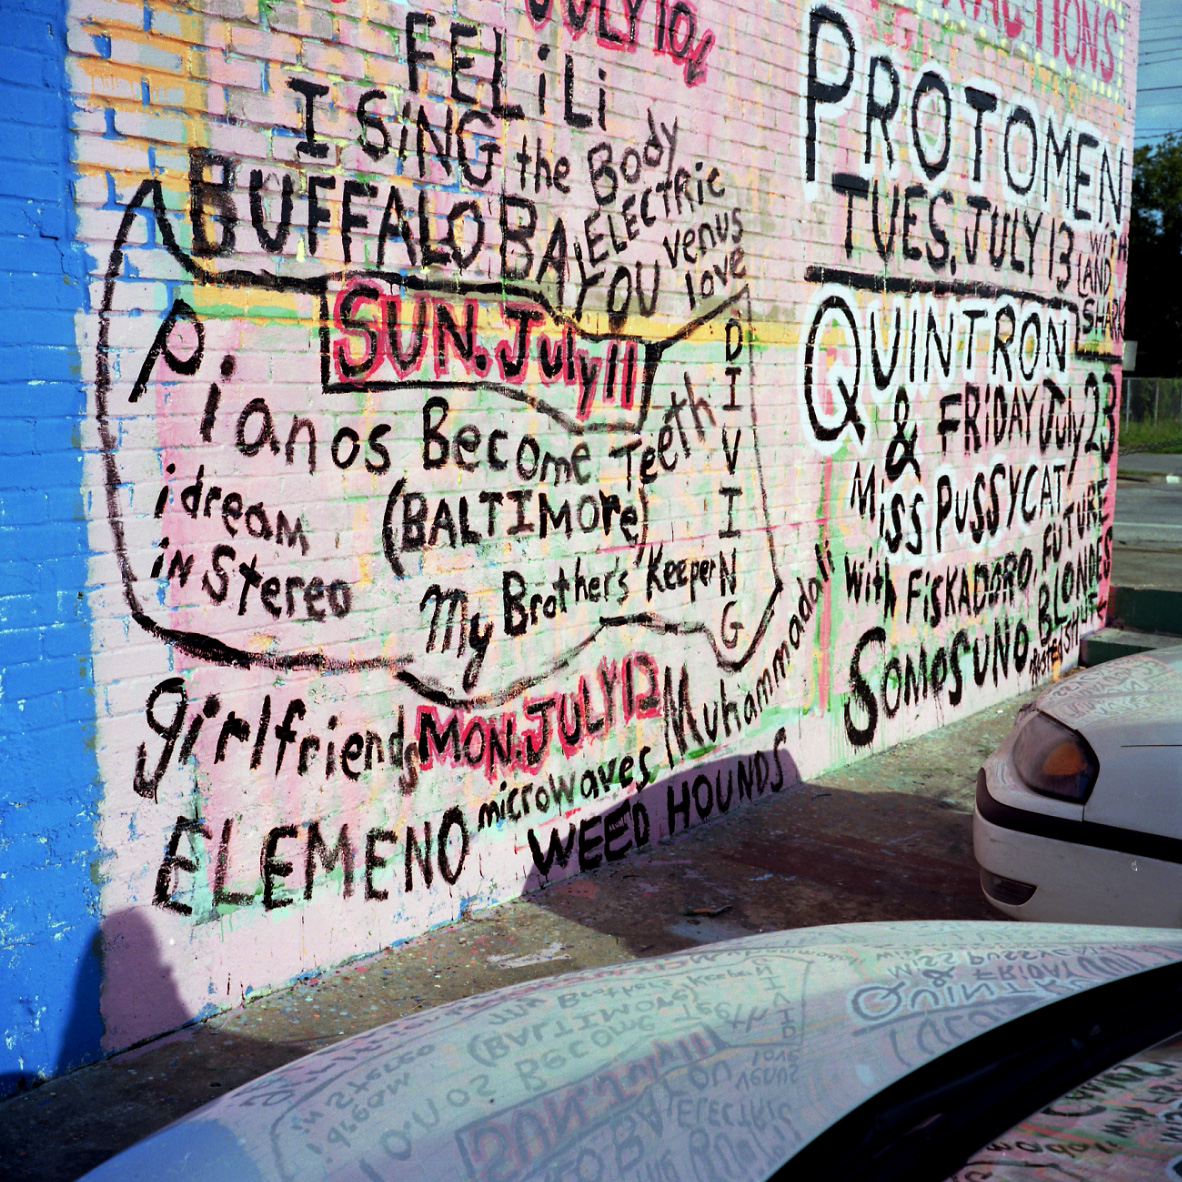 JULY 10
FELiLi
I SiNG the Body
ELECTRiC
BUFFALO BA
YOU
venus
love
SUN. July 11
Pianos Become Teeth
DIVIING
idream
in Stereo
(BALTIMore)
My Brother's Keeper
girlfriends
MON. JULY 12
Muhammadali
microwaves
ELEMENO
WEED HOUNDS
PROTOMEN
TUES. JULY 13
WITH
LAND
SHARK
QUINTRON
& FRiDAY July 23
MiSS PUSSYCAT
With FiSKADORO, FUTURE
BLONDES
SOMOSUNO